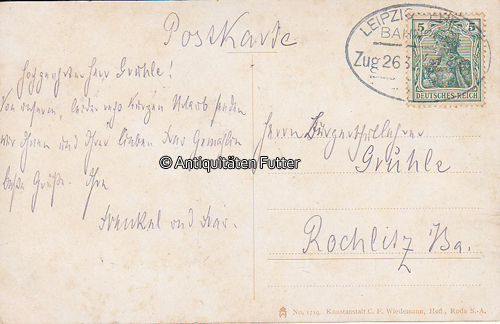 Postkarte
Hochgeehrter Herr Grühle!
Von unserem, leider nur kurzen Urlaub senden
wir Ihnen und Ihrer lieben Frau Gemahlin
beste Grüße. Ihre
Frenkel und Frau.
LEIPZIG
BAH
Zug 26
5 5
DEUTSCHES REICH
Herrn Bürgerschullehrer
Grühle
Rochlitz i/Sa.
© Antiquitäten Futter
No. 1719. Kunstanstalt C. F. Wiedemann, Hofl., Roda S.-A.